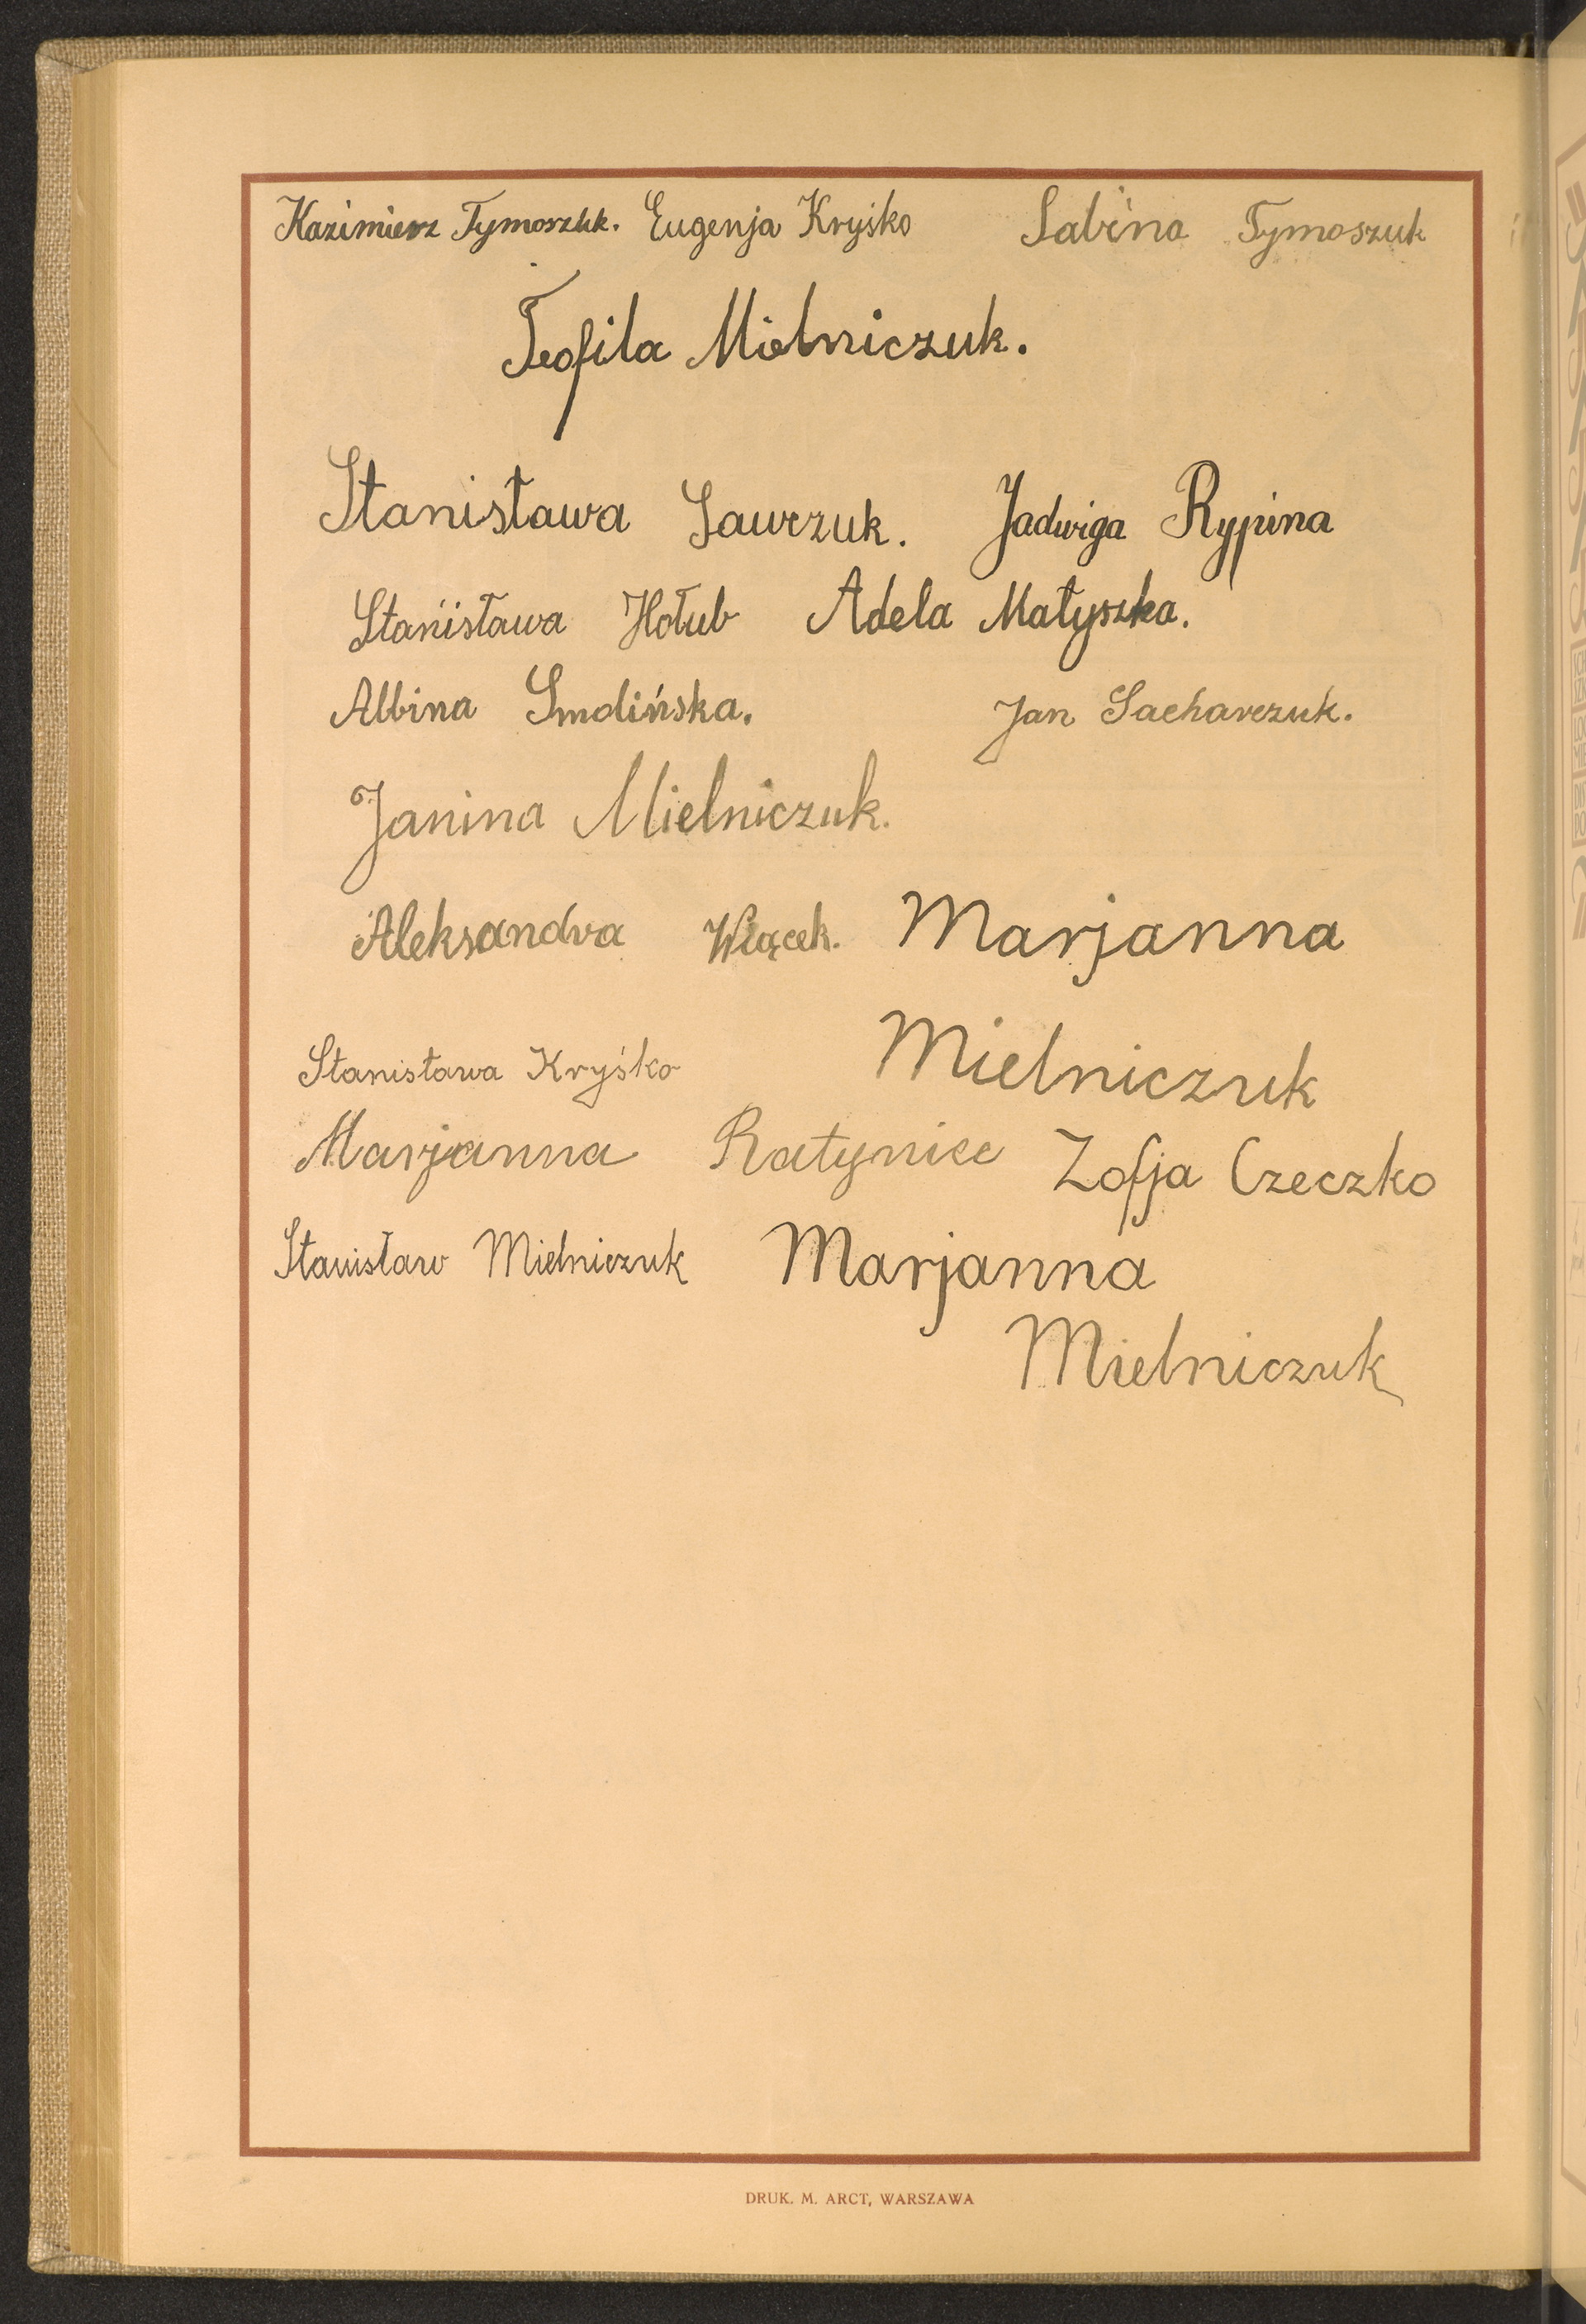 Kazimierz Tymoszuk. Eugenja Kryśko Sabina Tymoszuk
Teofila Mielniczuk.
Stanisława Sawczuk. Jadwiga Rypina
Stanisława Hołub Adela Matyszka.
Albina Smolińska. Jan Sacharczuk.
Janina Mielniczuk.
Aleksandra Wiącek. Marjanna
Stanisława Kryśko Mielniczuk
Marjanna Ratyniec Zofja Czeczko
Stanisław Mielniczuk Marjanna
Mielniczuk
DRUK. M. ARCT, WARSZAWA